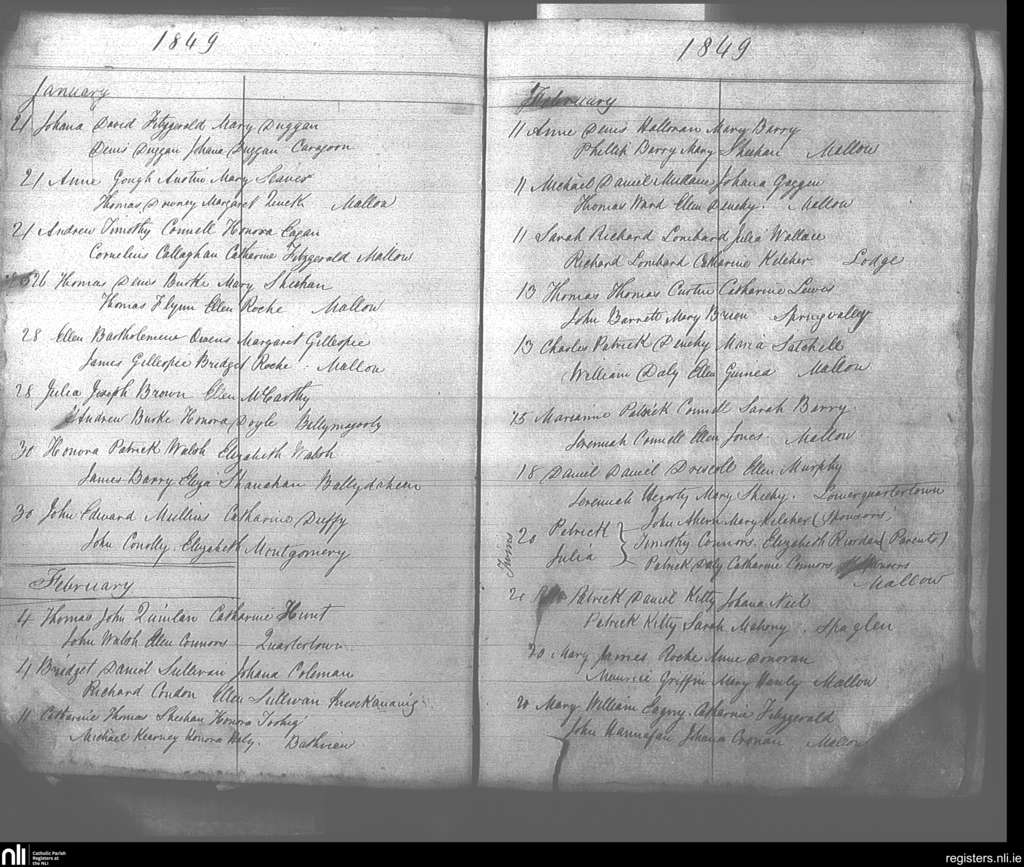 1849
January
21 Johana David Fitzgerald Mary Duggan
Denis Duggan Johana Duggan
21 Anne Gough Austin Mary
Thomas Downey Margaret Mallow
21 Andrew Timothy Connell Honora Eagan
Cornelius Callaghan Catharine Fitzgerald Mallow
26 Thomas Denis Burke Mary Sheehan
Thomas Flynn Ellen Roche Mallow
28 Ellen Bartholemew Owens Margaret Gillespie
James Gillespie Bridget Roche Mallow
28 Julia Joseph Brown Ellen McCarthy
Andrew Burke Honora Doyle
30 Honora Patrick Walsh Elizabeth Walsh
James Barry Eliza Shanahan
30 John Edward Mullins Catharine Duffy
John Conolly Elizabeth Montgomery
February
4 Thomas John Quinlan Catharine Hunt
John Walsh Ellen Connors Quartertown
4 Bridget Daniel Sullivan Johana Coleman
Richard Condon Ellen Sullivan
11 Catharine Thomas Sheehan Honora
Michael Kearney Honora Daly
1849
February
11 Anne Denis Halloran Mary Barry
Barry Mary Sheehan Mallow
11 Michael Daniel Mullane Johana
Thomas Ward Ellen Denehy. Mallow
11 Sarah Richard Lombard Julia Wallace
Richard Lombard Catharine Kelcher Lodge
13 Thomas Thomas Curtin Catharine Lewis
John Barrett Mary Brien Springvalley
13 Charles Patrick Denehy Maria Satchell
William Daly Ellen Guinea Mallow
15 Marianne Patrick Connell Sarah Barry
Jeremiah Connell Ellen Jones Mallow
18 Daniel Daniel Driscoll Ellen Murphy
Jeremiah Hegarty Mary Sheehy. Lowerquartertown
Twins
20 Patrick John Ahern Mary Kelcher (Sponsors,
Julia Timothy Connors. Elizabeth Riordan (Parents)
Patrick Daly Catharine Connors Sponsors
Mallow
20 Patrick Daniel Kitty Johana Neil
Patrick Kitty Sarah Mahony Spaglen
20 Mary James Roche Anne Donovan
Maurice Griffin Mary Hanly Mallow
20 Mary William Catharine Fitzgerald
John Hannafan Johana Cronan Mallow
nli
Catholic Parish
Registers at
the NLI
registers.nli.ie